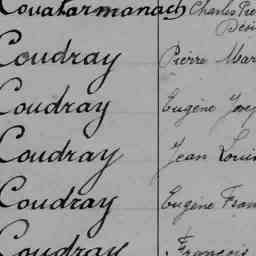 Charles Pie
Coudray Pierre Mar
Coudray Eugène Jose
Coudray Jean Louis
Coudray Eugène Fran
Coudray François